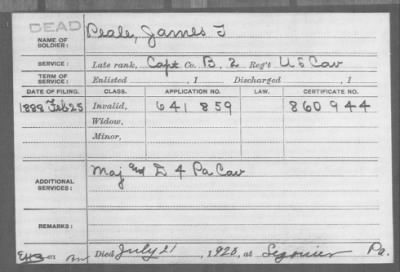 DEAD
NAME OF SOLDIER: Peale, James T
SERVICE: Late rank, Capt Co. B, 2 Reg't U S Cav
TERM OF SERVICE: Enlisted , 1 Discharged , 1
DATE OF FILING. CLASS. APPLICATION NO. LAW. CERTIFICATE NO.
1888 Feb 25 Invalid, 641859 860944
Widow,
Minor,
ADDITIONAL SERVICES: Maj and D 4 Pa Cav
REMARKS:
Died July 21, 1925, at Ligonier Pa.